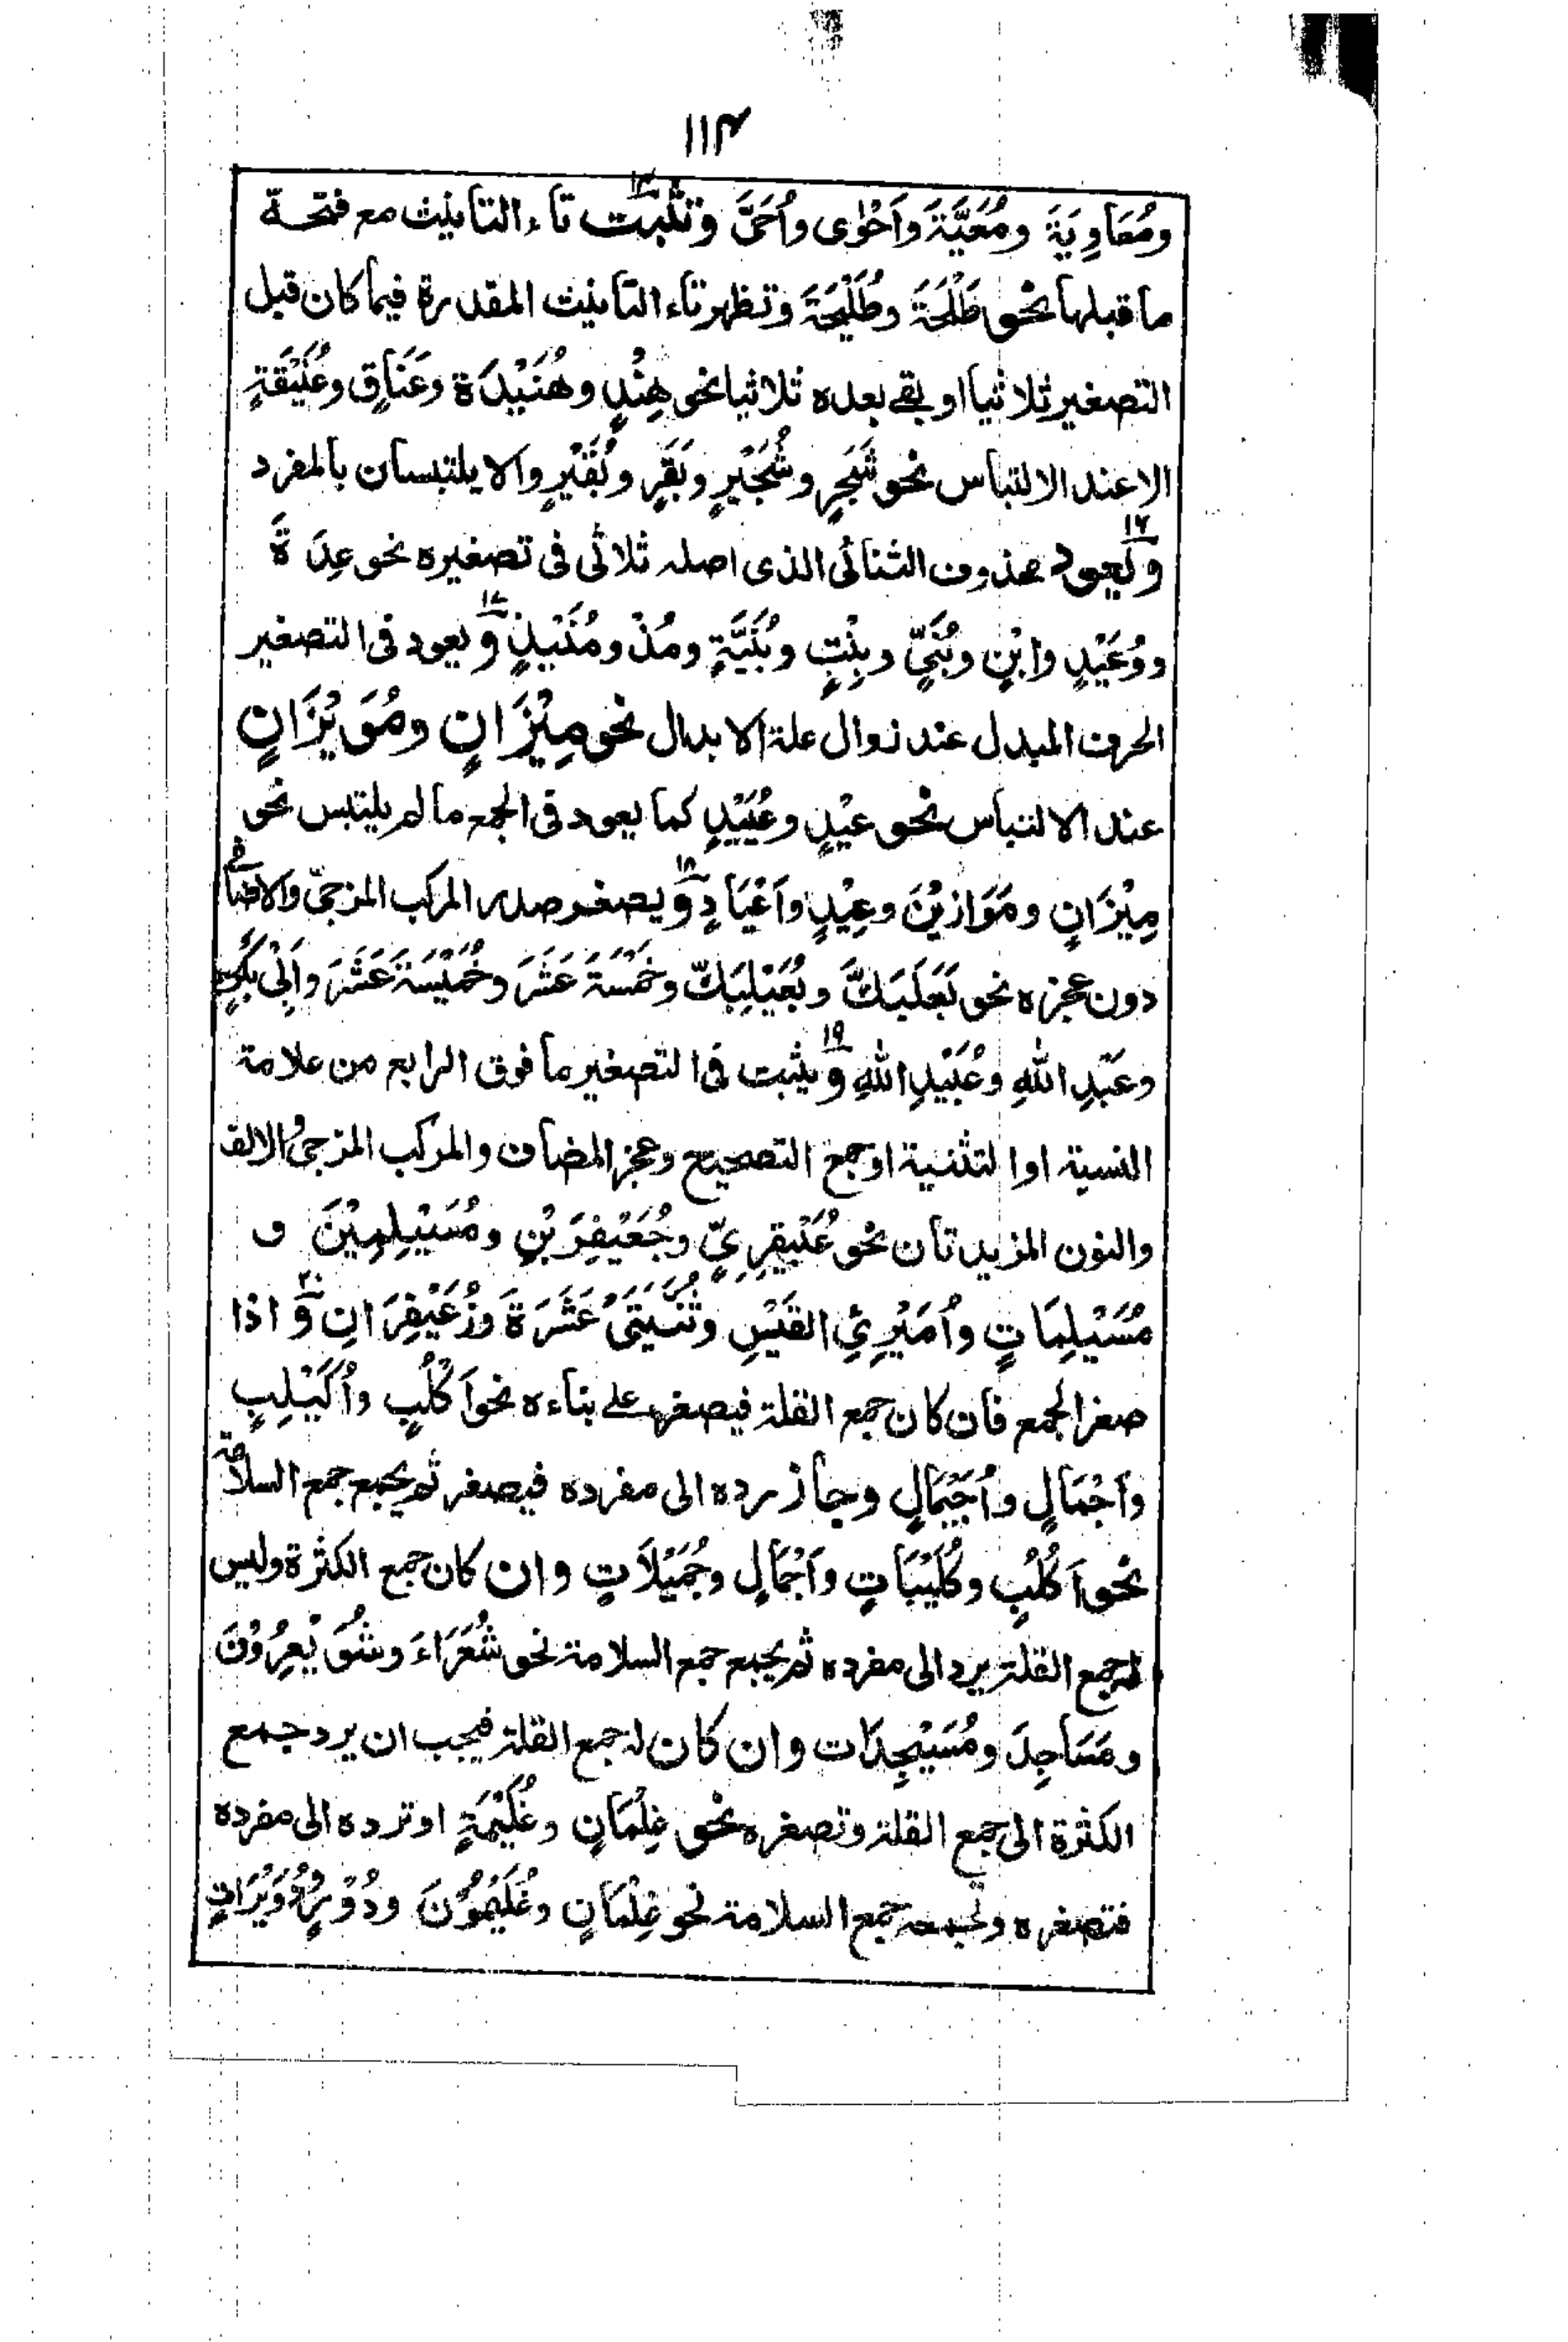 ١١٣
ومُعَاوِيَةَ ومُعَيَّةَ وَاَحْوٰى واُحَىَّ وتثبت تاء التانيث مع فتحة
ما قبلها نحو طَلْحَةَ وطُلَيْحَةَ وتظهر تاء التانيث المقدرة فيما كان قبل
التصغير ثلاثيا او بقے بعده ثلاثيا نحو هِنْدٍ وهُنَيْدَةَ وعَنَاقٍ وعُنَيْقَةٍ
الا عند الالتباس نحو شَجَرٍ وشُجَيْرٍ وبَقَرٍ وبُقَيْرٍ والا يلتبسان بالمفرد
١٦ ويعود محذوف الثنائى الذى اصله ثلاثى فى تصغيره نحو عِدَةً
ووُعَيْدٍ وابْنٍ وبُنَيٍّ وبِنْتٍ وبُنَيَّةٍ ومُذْ ومُنَيْذٍ ١٧ ويعود فى التصغير
الحرف المبدل عند زوال علة الابدال نحو مِيْزَانٍ ومُوَيْزَانٍ
عند الالتباس نحو عِيْدٍ وعُيَيْدٍ كما يعود فى الجمع ما لم يلتبس نحو
مِيْزَانٍ ومَوَازِيْنَ وعِيْدٍ واَعْيَادٍ ١٨ ويصغر صدر المركب المزجىّ والاضافے
دون عجزه نحو بَعْلَبَكَّ وبُعَيْلِبَكَّ وخَمْسَةَ عَشَرَ وخُمَيْسَةَ عَشَرَ وَاَبِىْ بَكْرٍ
وعَبْدِ اللهِ وعُبَيْدِ اللهِ ١٩ ويثبت فى التصغير ما فوق الرابع من علامة
النسبة او التثنية او جمع التصحيح وعجز المضاف والمركب المزجى والالف
والنون المزيدتان نحو عُبَيْقِرِىٍّ وجُعَيْفِرَيْنِ ومُسَيْلِمِيْنَ و
مُسَيْلِمَاتٍ واُمَيْرِئِ القَيْسِ وثُنَيَّتَىْ عَشَرَةَ وزُعَيْفِرَانِ ٢٠ و اذا
صغر الجمع فان كان جمع القلة فيصغر على بناءه نحو اَكْلُبٍ واُكَيْلِبٍ
واَجْمَالٍ واُجَيْمَالٍ وجاز رده الى مفرده فيصغر ثم يجمع جمع السلامة
نحو اَكْلُبٍ وكُلَيْبَاتٍ واَجْمَالٍ وجُمَيْلَاتٍ وان كان جمع الكثرة وليس
له جمع القلة يرد الى مفرده ثم يجمع جمع السلامة نحو شُعَرَاءَ وشُوَيْعِرُوْنَ
ومَسَاجِدَ ومُسَيْجِدَات وان كان له جمع القلة فيجب ان يرد جمع
الكثرة الى جمع القلة وتصغره نحو غِلْمَانٍ وغُلَيْمَةٍ او ترده الى مفرده
فتصغره وتجمعه جمع السلامة نحو غِلْمَانٍ وغُلَيِّمُوْنَ ودُوْرٍ ودُوَيْرَاتٍ